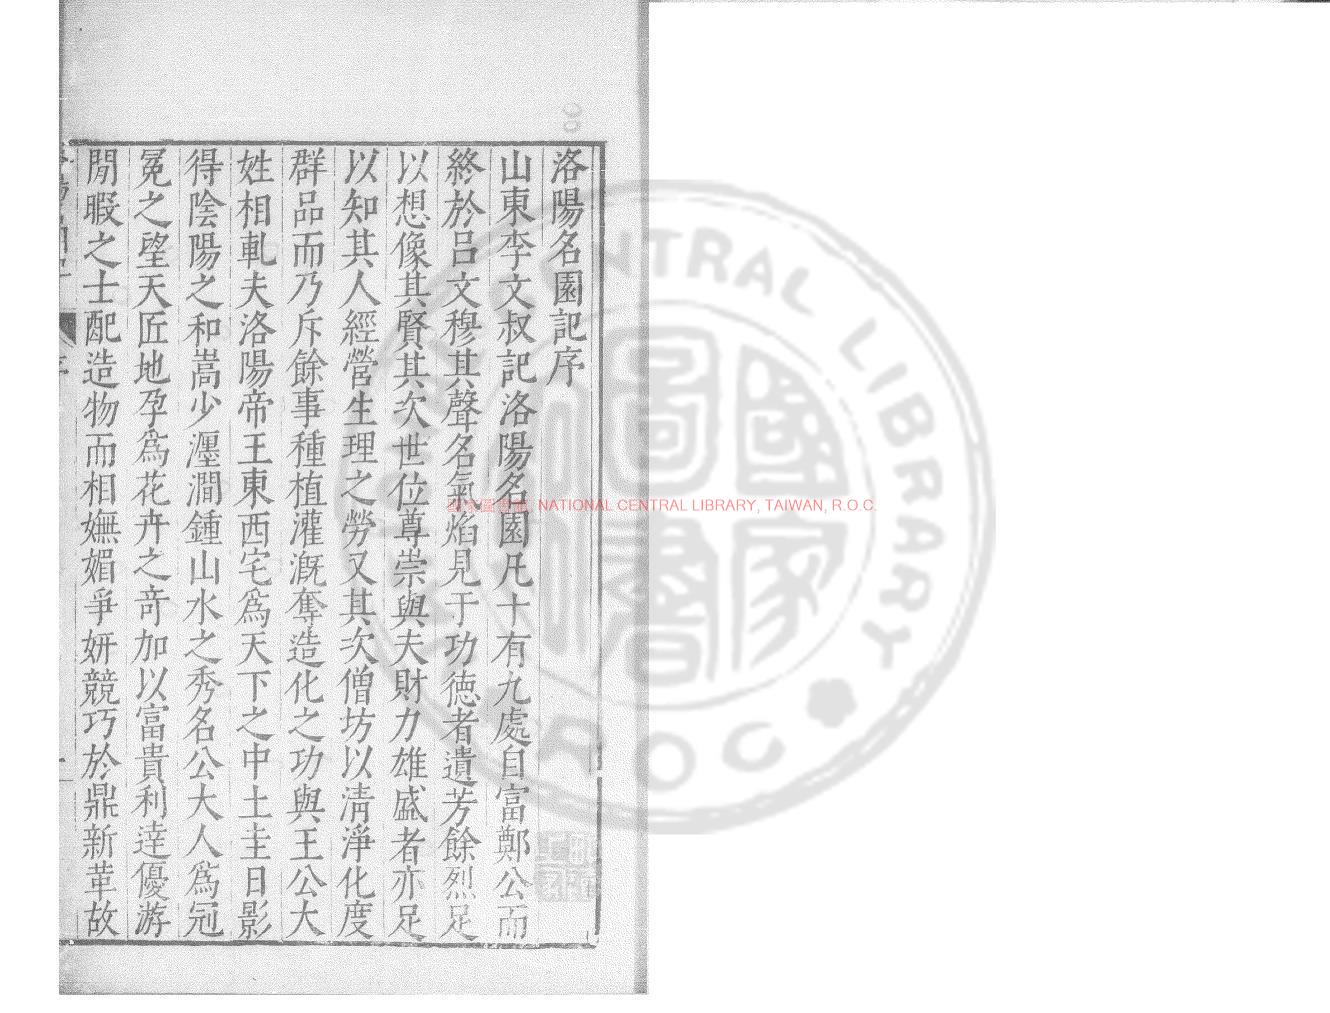 洛陽名園記序
山東李文叔記洛陽名園凡十有九處自富鄭公而
終於呂文穆其聲名氣焰見于功徳者遺芳餘烈足
以想像其賢其次世位尊崇與夫財力雄盛者亦足
以知其人經營生理之勞又其次僧坊以清淨化度
群品而乃斥餘事種植灌溉奪造化之功與王公大
姓相軋夫洛陽帝王東西宅爲天下之中土圭日影
得陰陽之和嵩少瀍澗鍾山水之秀名公大人爲冠
冕之望天匠地孕爲花卉之竒加以富貴利達優游
閒暇之士配造物而相嫵媚爭妍競巧於鼎新革故
序
一
國家圖書館 NATIONAL CENTRAL LIBRARY, TAIWAN, R.O.C.
CENTRAL LIBRARY
R.O.C
國家圖書